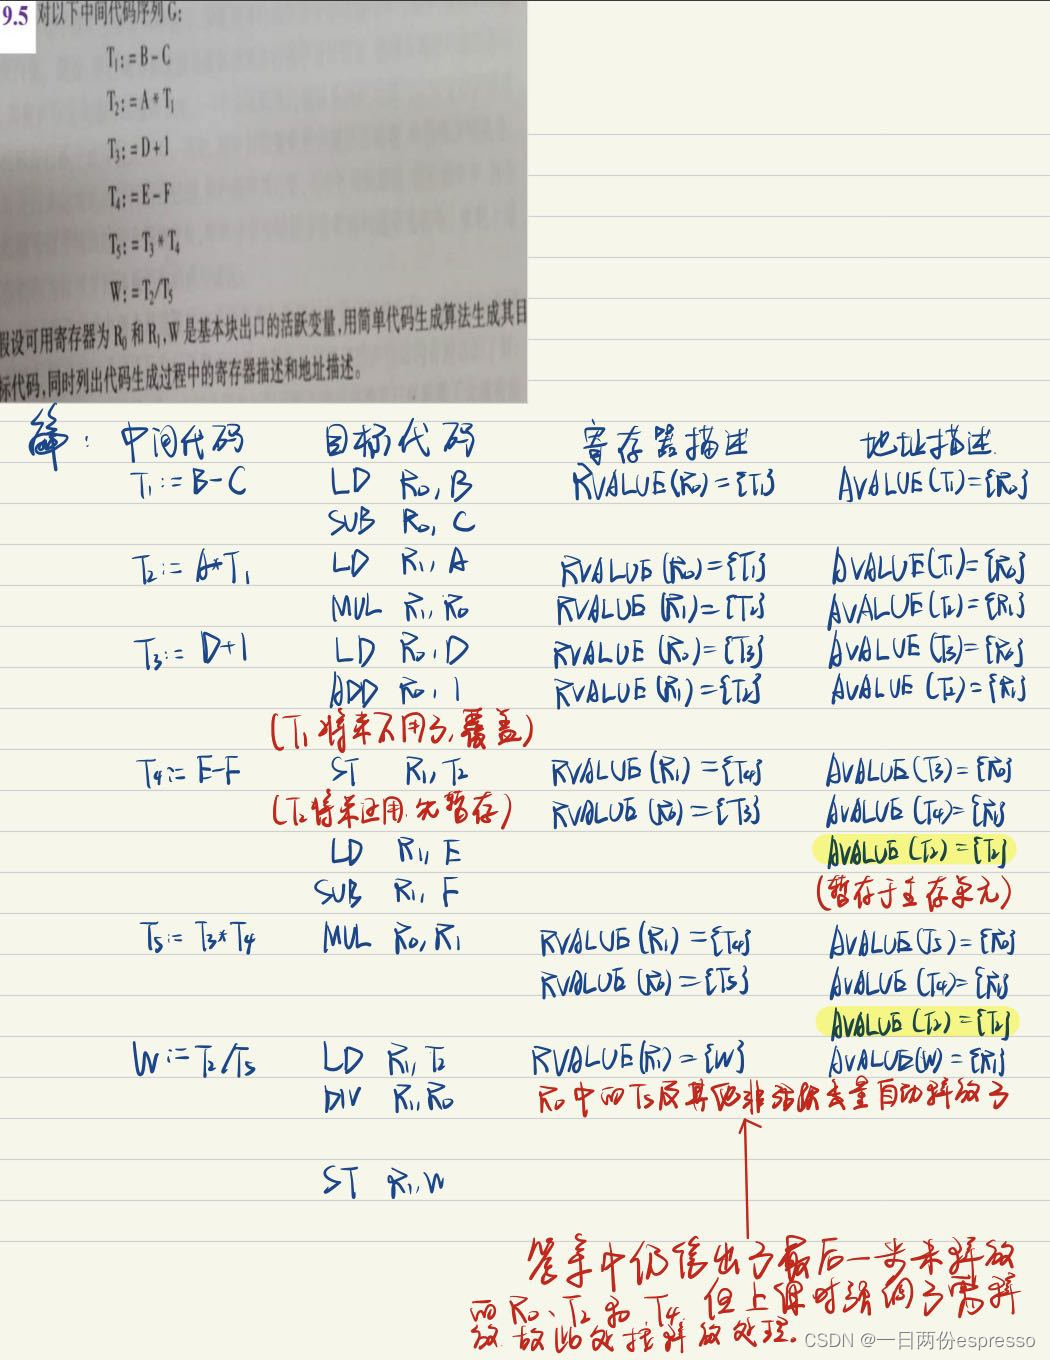 9.5 对以下中间代码序列 G:
T₁:=B-C
T₂:=A*T₁
T₃:=D+1
T₄:=E-F
T₅:=T₃*T₄
W:=T₂/T₅
假设可用寄存器为 R₀ 和 R₁,W 是基本块出口的活跃变量,用简单代码生成算法生成其目
标代码,同时列出代码生成过程中的寄存器描述和地址描述。
解: 中间代码 目标代码 寄存器描述 地址描述.
T₁:=B-C LD R₀, B RVALUE(R₀)={T₁} AVALUE(T₁)={R₀}
SUB R₀, C
T₂:= A*T₁ LD R₁, A RVALUE(R₀)={T₁} AVALUE(T₁)={R₀}
MUL R₁, R₀ RVALUE(R₁)={T₂} AVALUE(T₂)={R₁}
T₃:= D+1 LD R₀, D RVALUE(R₀)={T₃} AVALUE(T₃)={R₀}
ADD R₀, 1 RVALUE(R₁)={T₂} AVALUE(T₂)={R₁}
(T₁将来不用了,覆盖)
T₄:= E-F ST R₁, T₂ RVALUE(R₁)={T₄} AVALUE(T₃)={R₀}
(T₂将来还用,先暂存) RVALUE(R₀)={T₃} AVALUE(T₄)={R₁}
LD R₁, E AVALUE(T₂)={T₂}
SUB R₁, F (暂存于主存单元)
T₅:= T₃*T₄ MUL R₀, R₁ RVALUE(R₁)={T₄} AVALUE(T₅)={R₀}
RVALUE(R₀)={T₅} AVALUE(T₄)={R₁}
AVALUE(T₂)={T₂}
W:=T₂/T₅ LD R₁, T₂ RVALUE(R₁)={W} AVALUE(W)={R₁}
DIV R₁, R₀ R₀中的T₅及其他非活跃变量自动释放了
ST R₁, W
答案中仍给出了最后一步未释放
的R₀、T₂和T₄ 但上课时强调了需释
放 故此处按释放处理.
CSDN @一日两份espresso